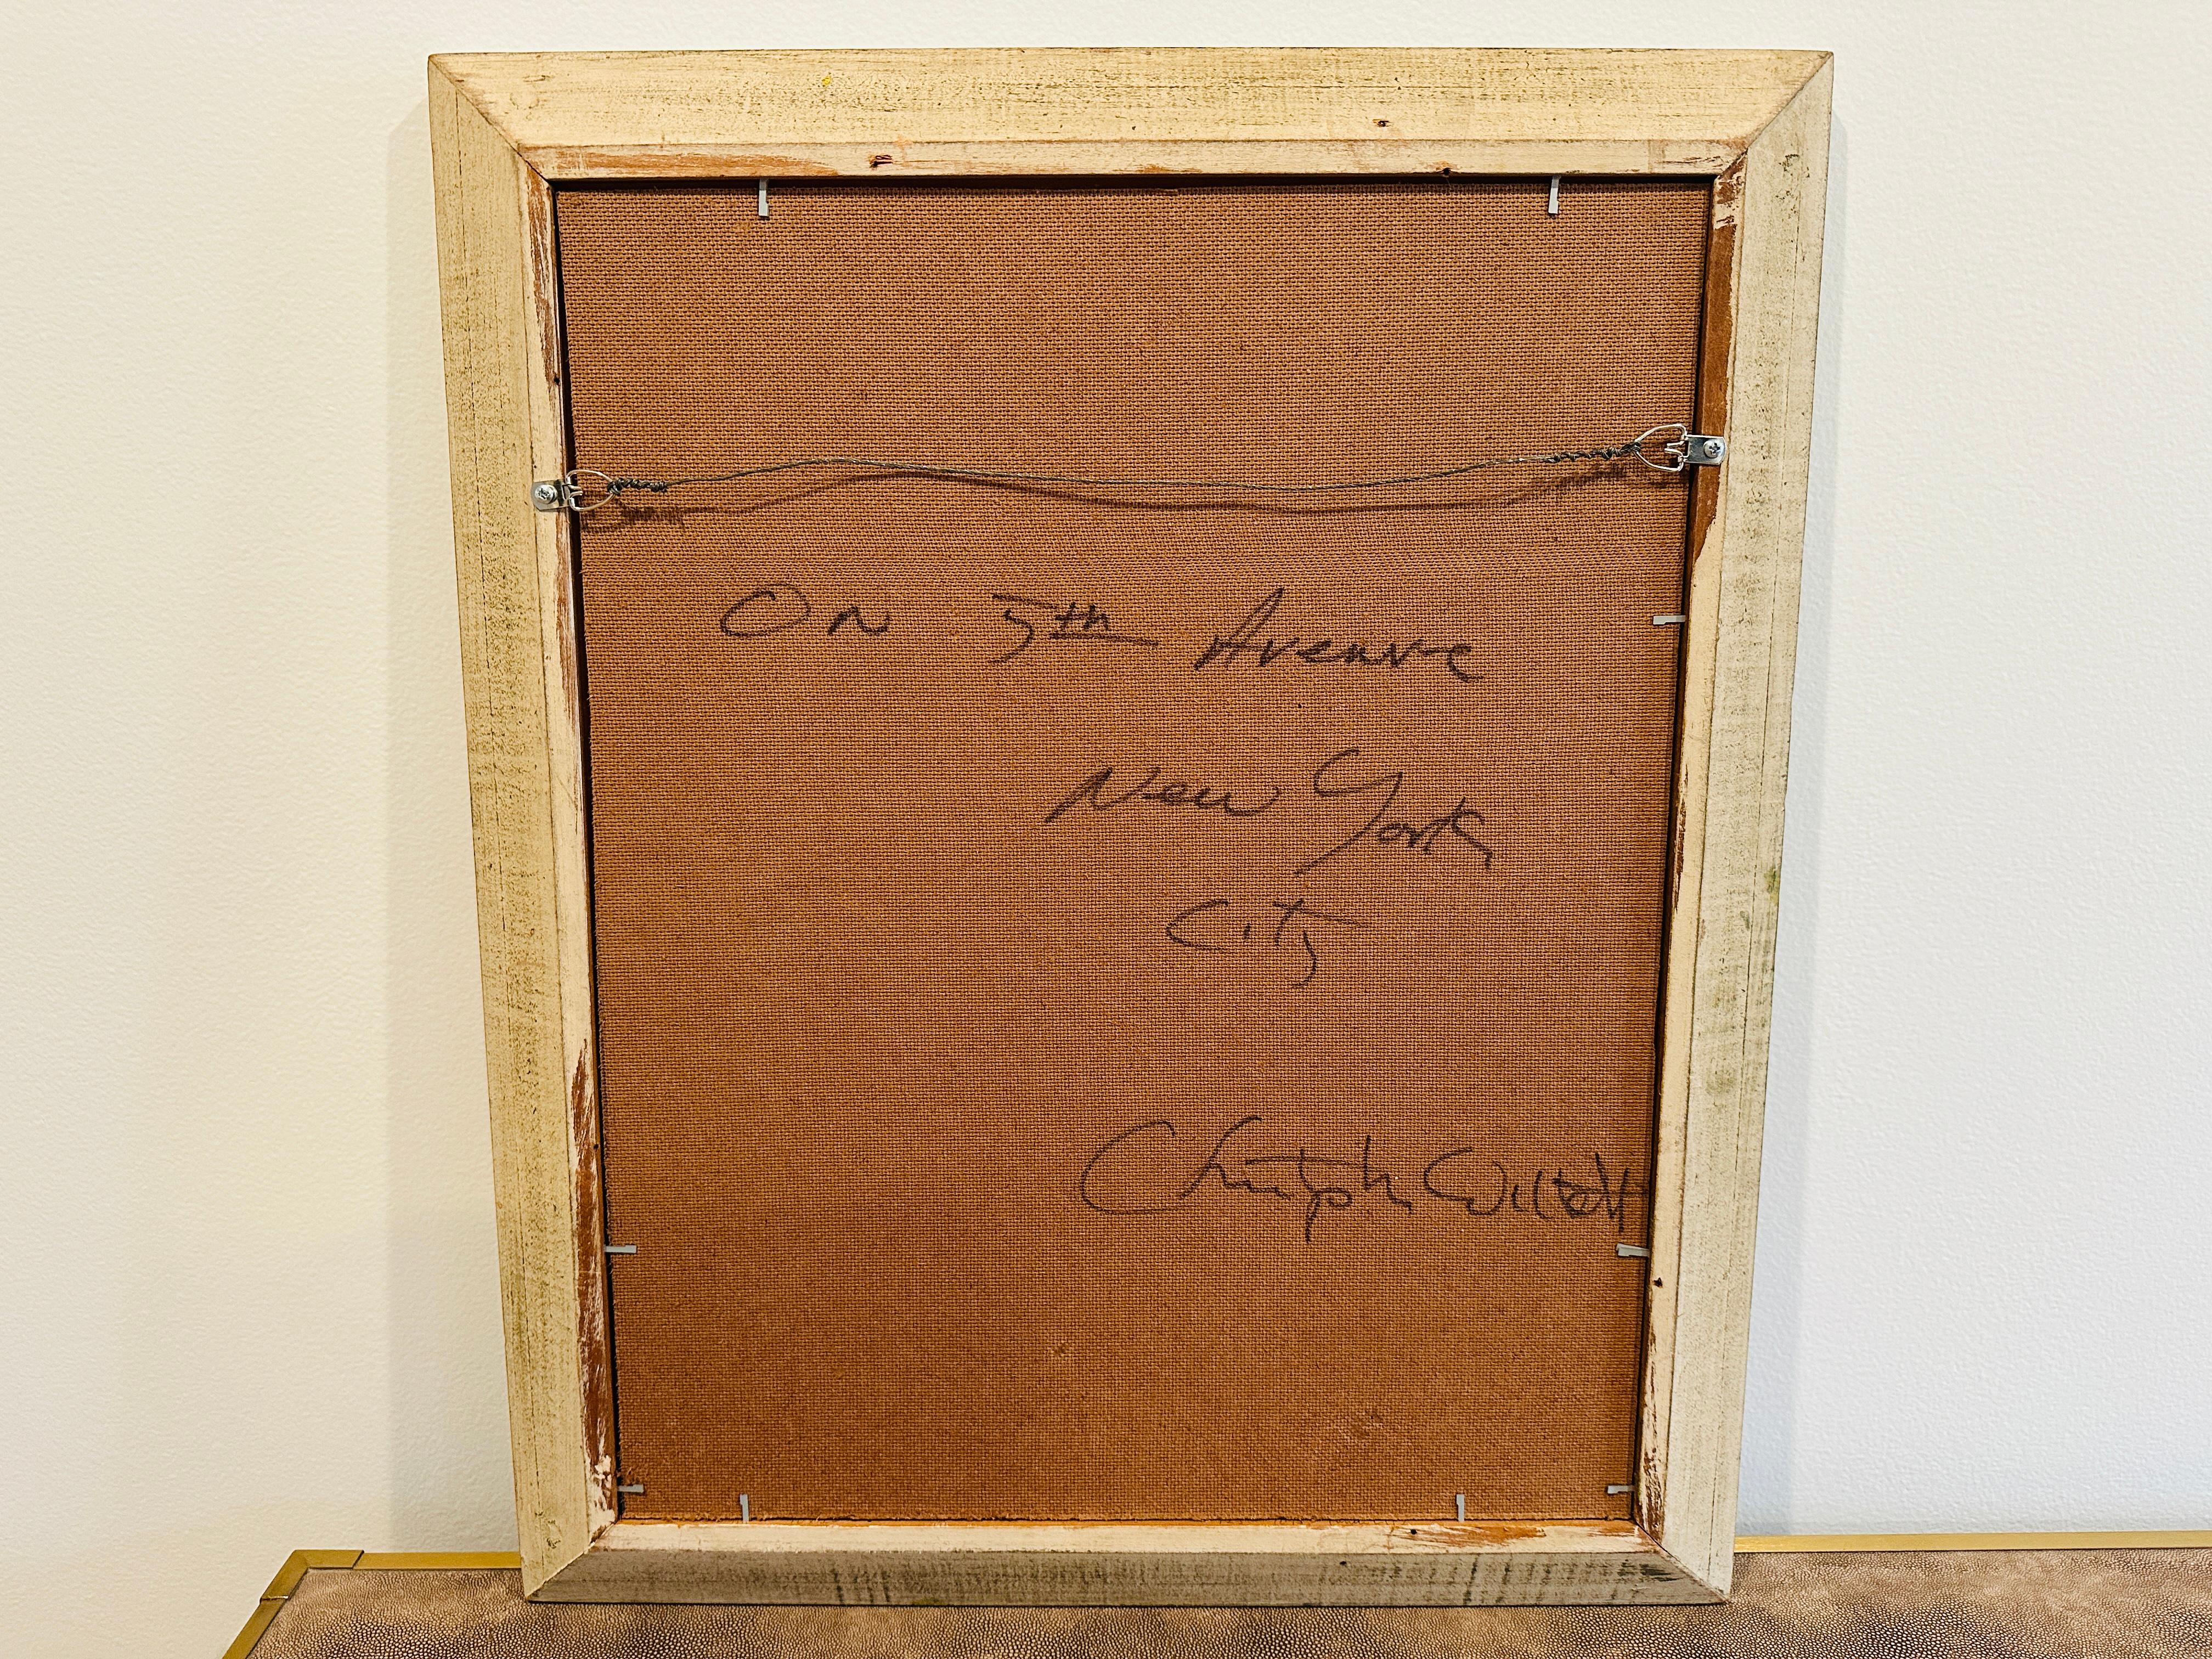 On 5th Avenue
New York
City
Christoph Willett